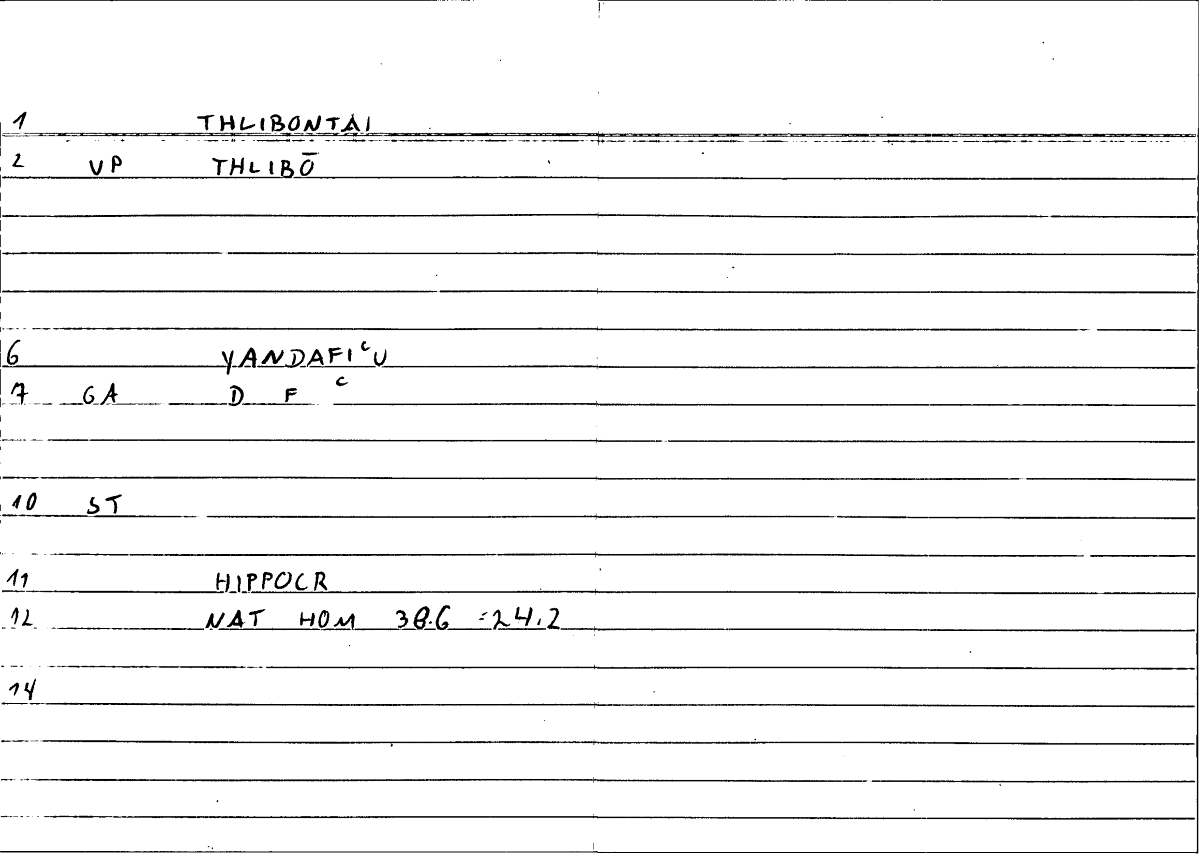 1 THLIBONTAI
2 VP THLIBŌ
6 YANDAFIᶜU
7 GA D F ᶜ
10 ST
11 HIPPOCR
12 NAT HOM 38.6 =24.2
14